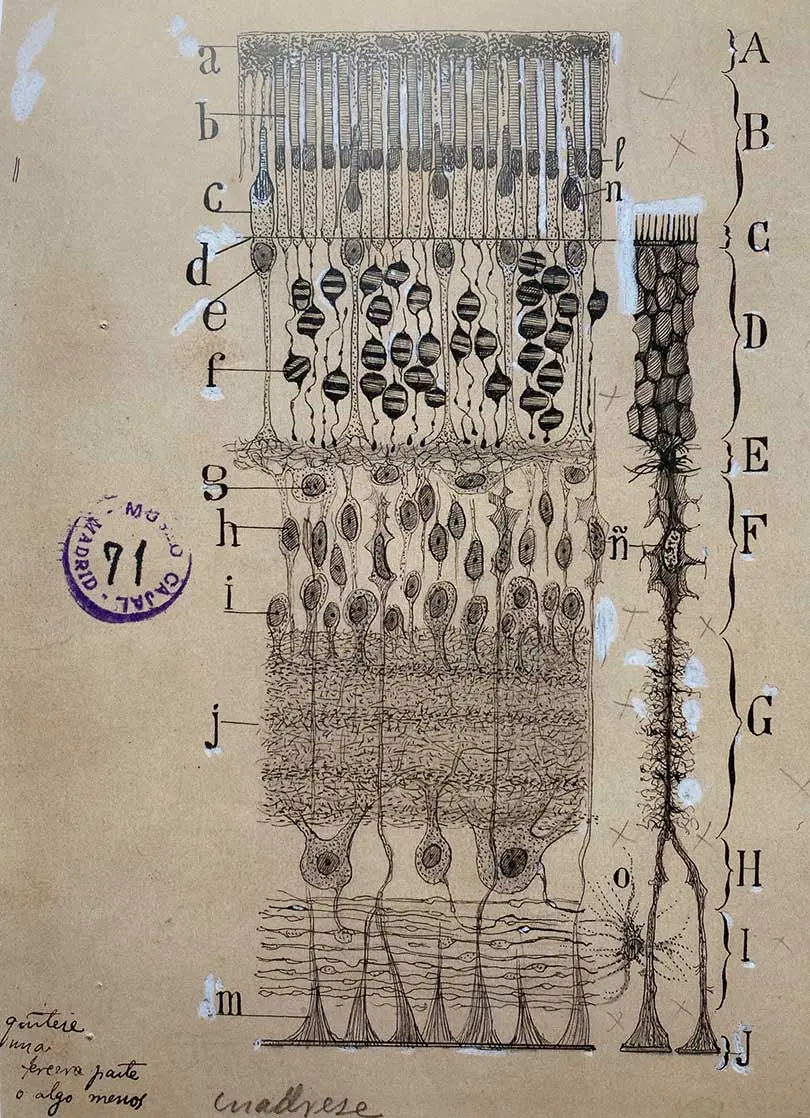 a
b
c
d
e
f
g
h
i
j
m
l
n
ñ
o
A
B
C
D
E
F
G
H
I
J
MUSEO CAJAL - MADRID -
71
quítese
una
tercera parte
o algo menos
cuadrese